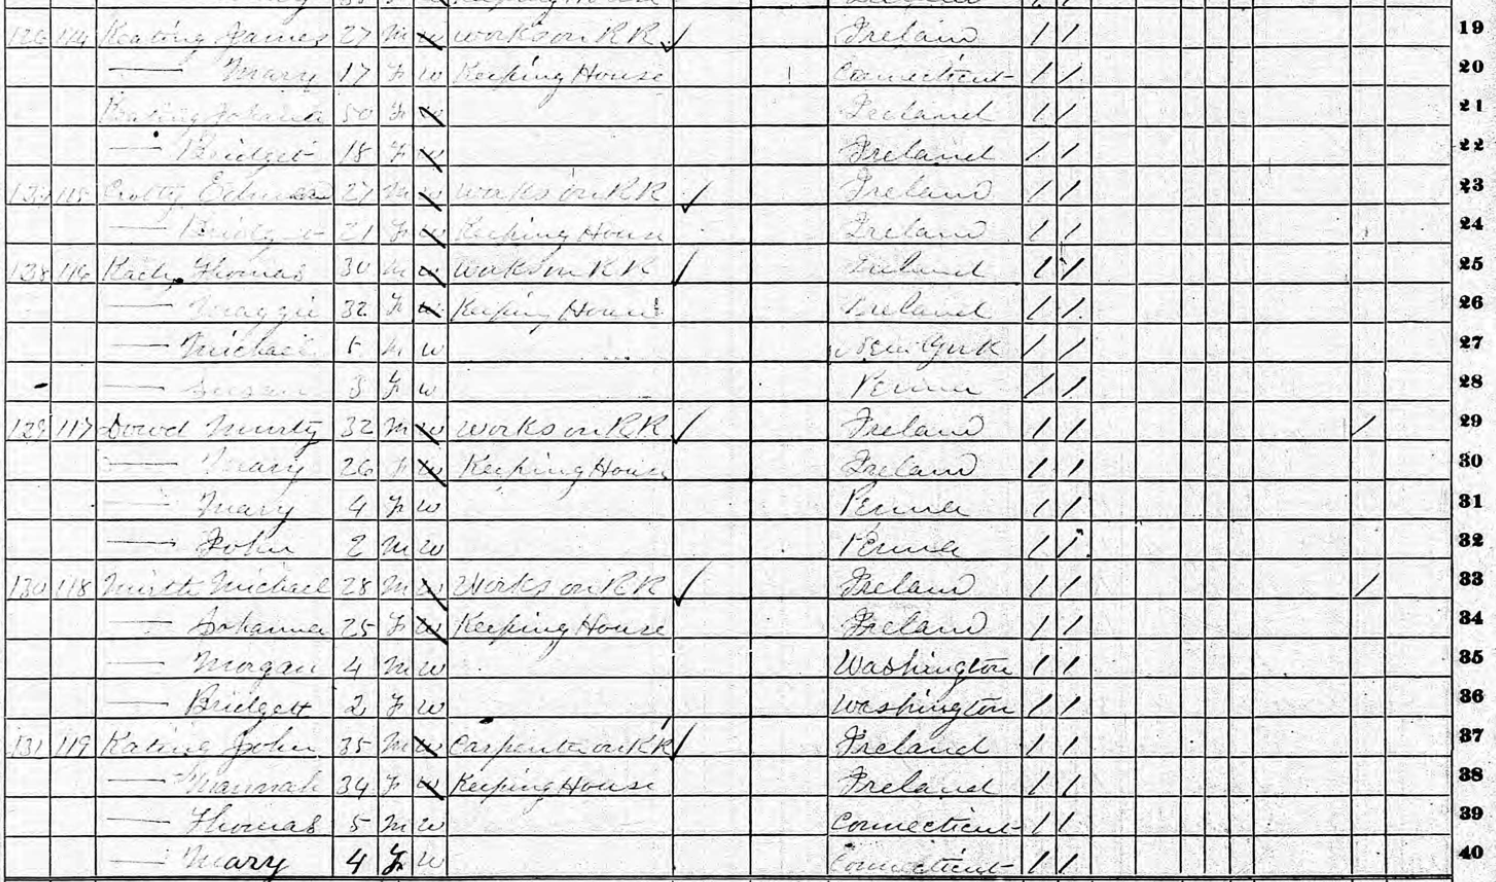 Keeping House
126 114 Keating James 27 M W works on RR Ireland 1 1 19
— Mary 17 F W Keeping House Connecticut 1 1 20
Keating Johanna 50 F W Ireland 1 1 21
— Bridget 18 F W Ireland 1 1 22
115 Edward 27 M W works on RR Ireland 1 1 23
— Bridget 21 F W Keeping House Ireland 1 1 24
128 116 Thomas 30 M W Works on RR Ireland 1 1 25
— Maggie 32 F W Keeping House Ireland 1 1 26
— Michael 5 M W New York 1 1 27
— Susan 3 F W Penna 1 1 28
129 117 Dowd Murty 32 M W Works on RR Ireland 1 1 29
— Mary 26 F W Keeping House Ireland 1 1 30
— Mary 4 F W Penna 1 1 31
— John 2 M W Penna 1 1 32
130 118 Michael 28 M W Works on RR Ireland 1 1 33
— Johanna 25 F W Keeping House Ireland 1 1 34
— Morgan 4 M W Washington 1 1 35
— Bridgett 2 F W Washington 1 1 36
131 119 Kating John 35 M W Carpenter on RR Ireland 1 1 37
— Hannah 34 F W Keeping House Ireland 1 1 38
— Thomas 5 M W Connecticut 1 1 39
— Mary 4 F W Connecticut 1 1 40